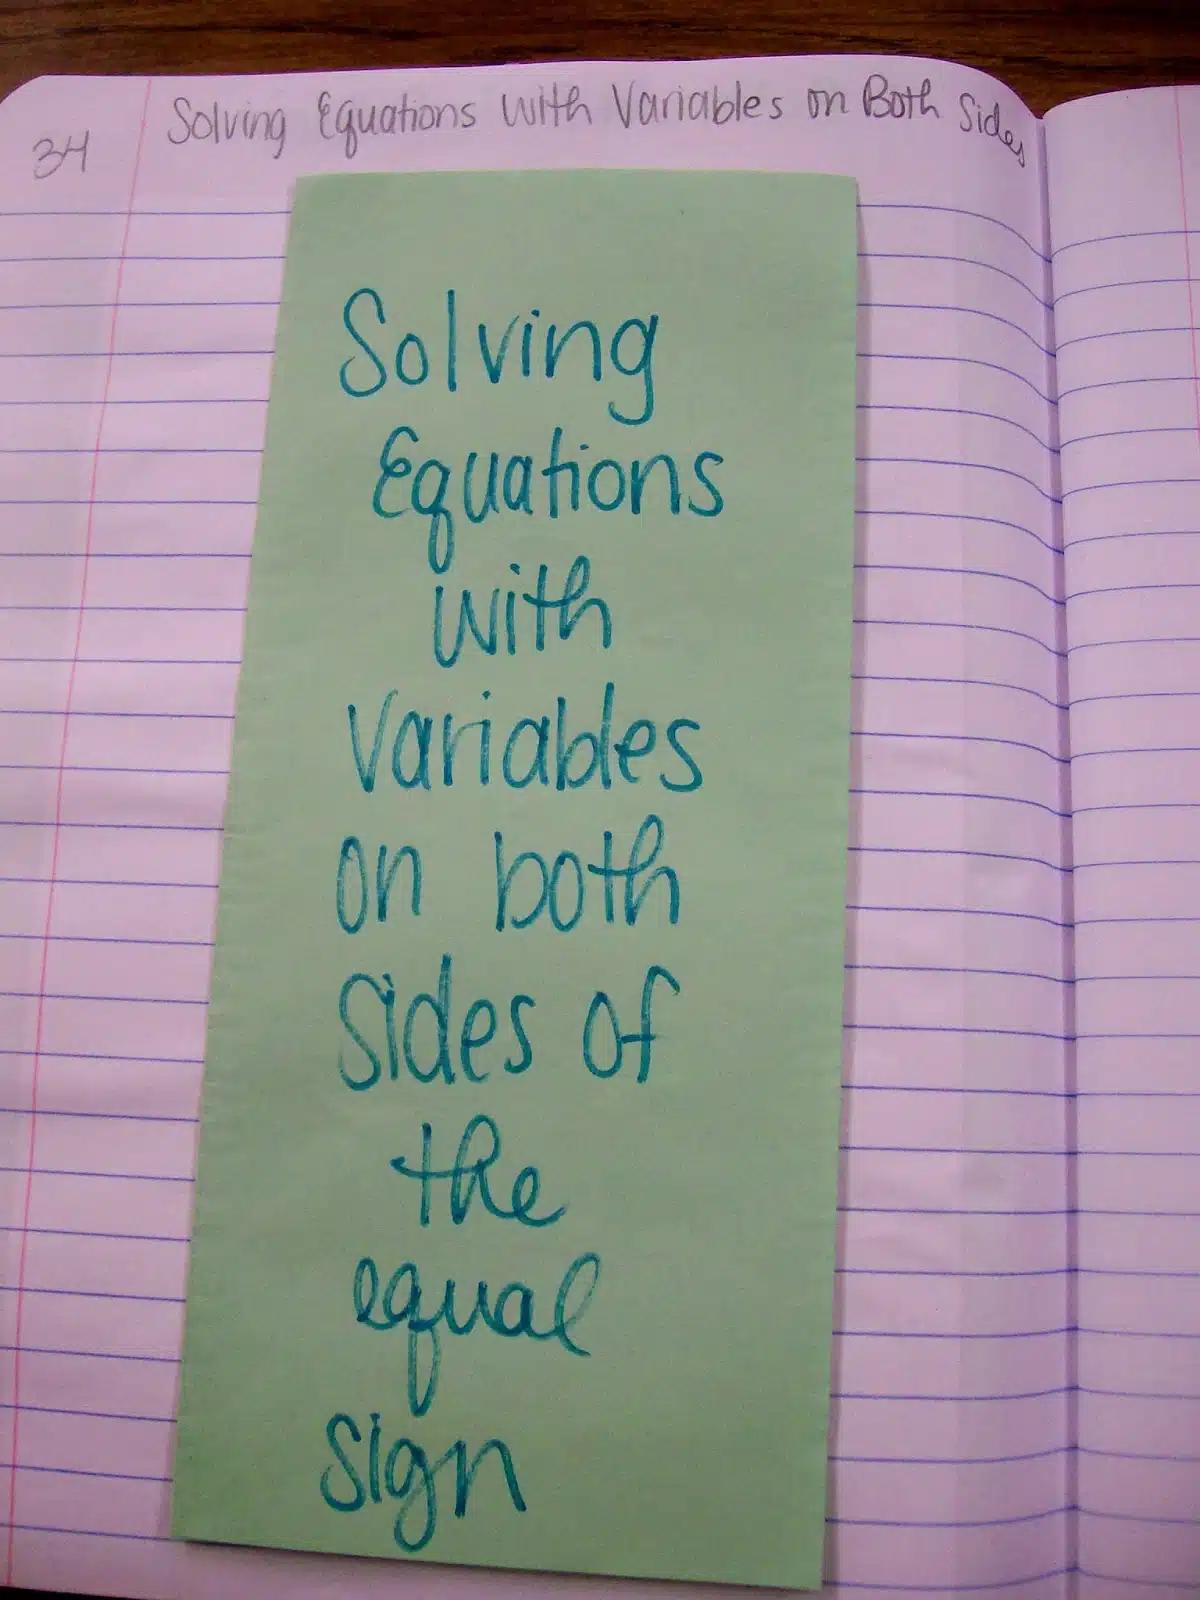 Solving Equations with Variables on Both Sides
34
Solving
Equations
with
Variables
on both
sides of
the
equal
sign